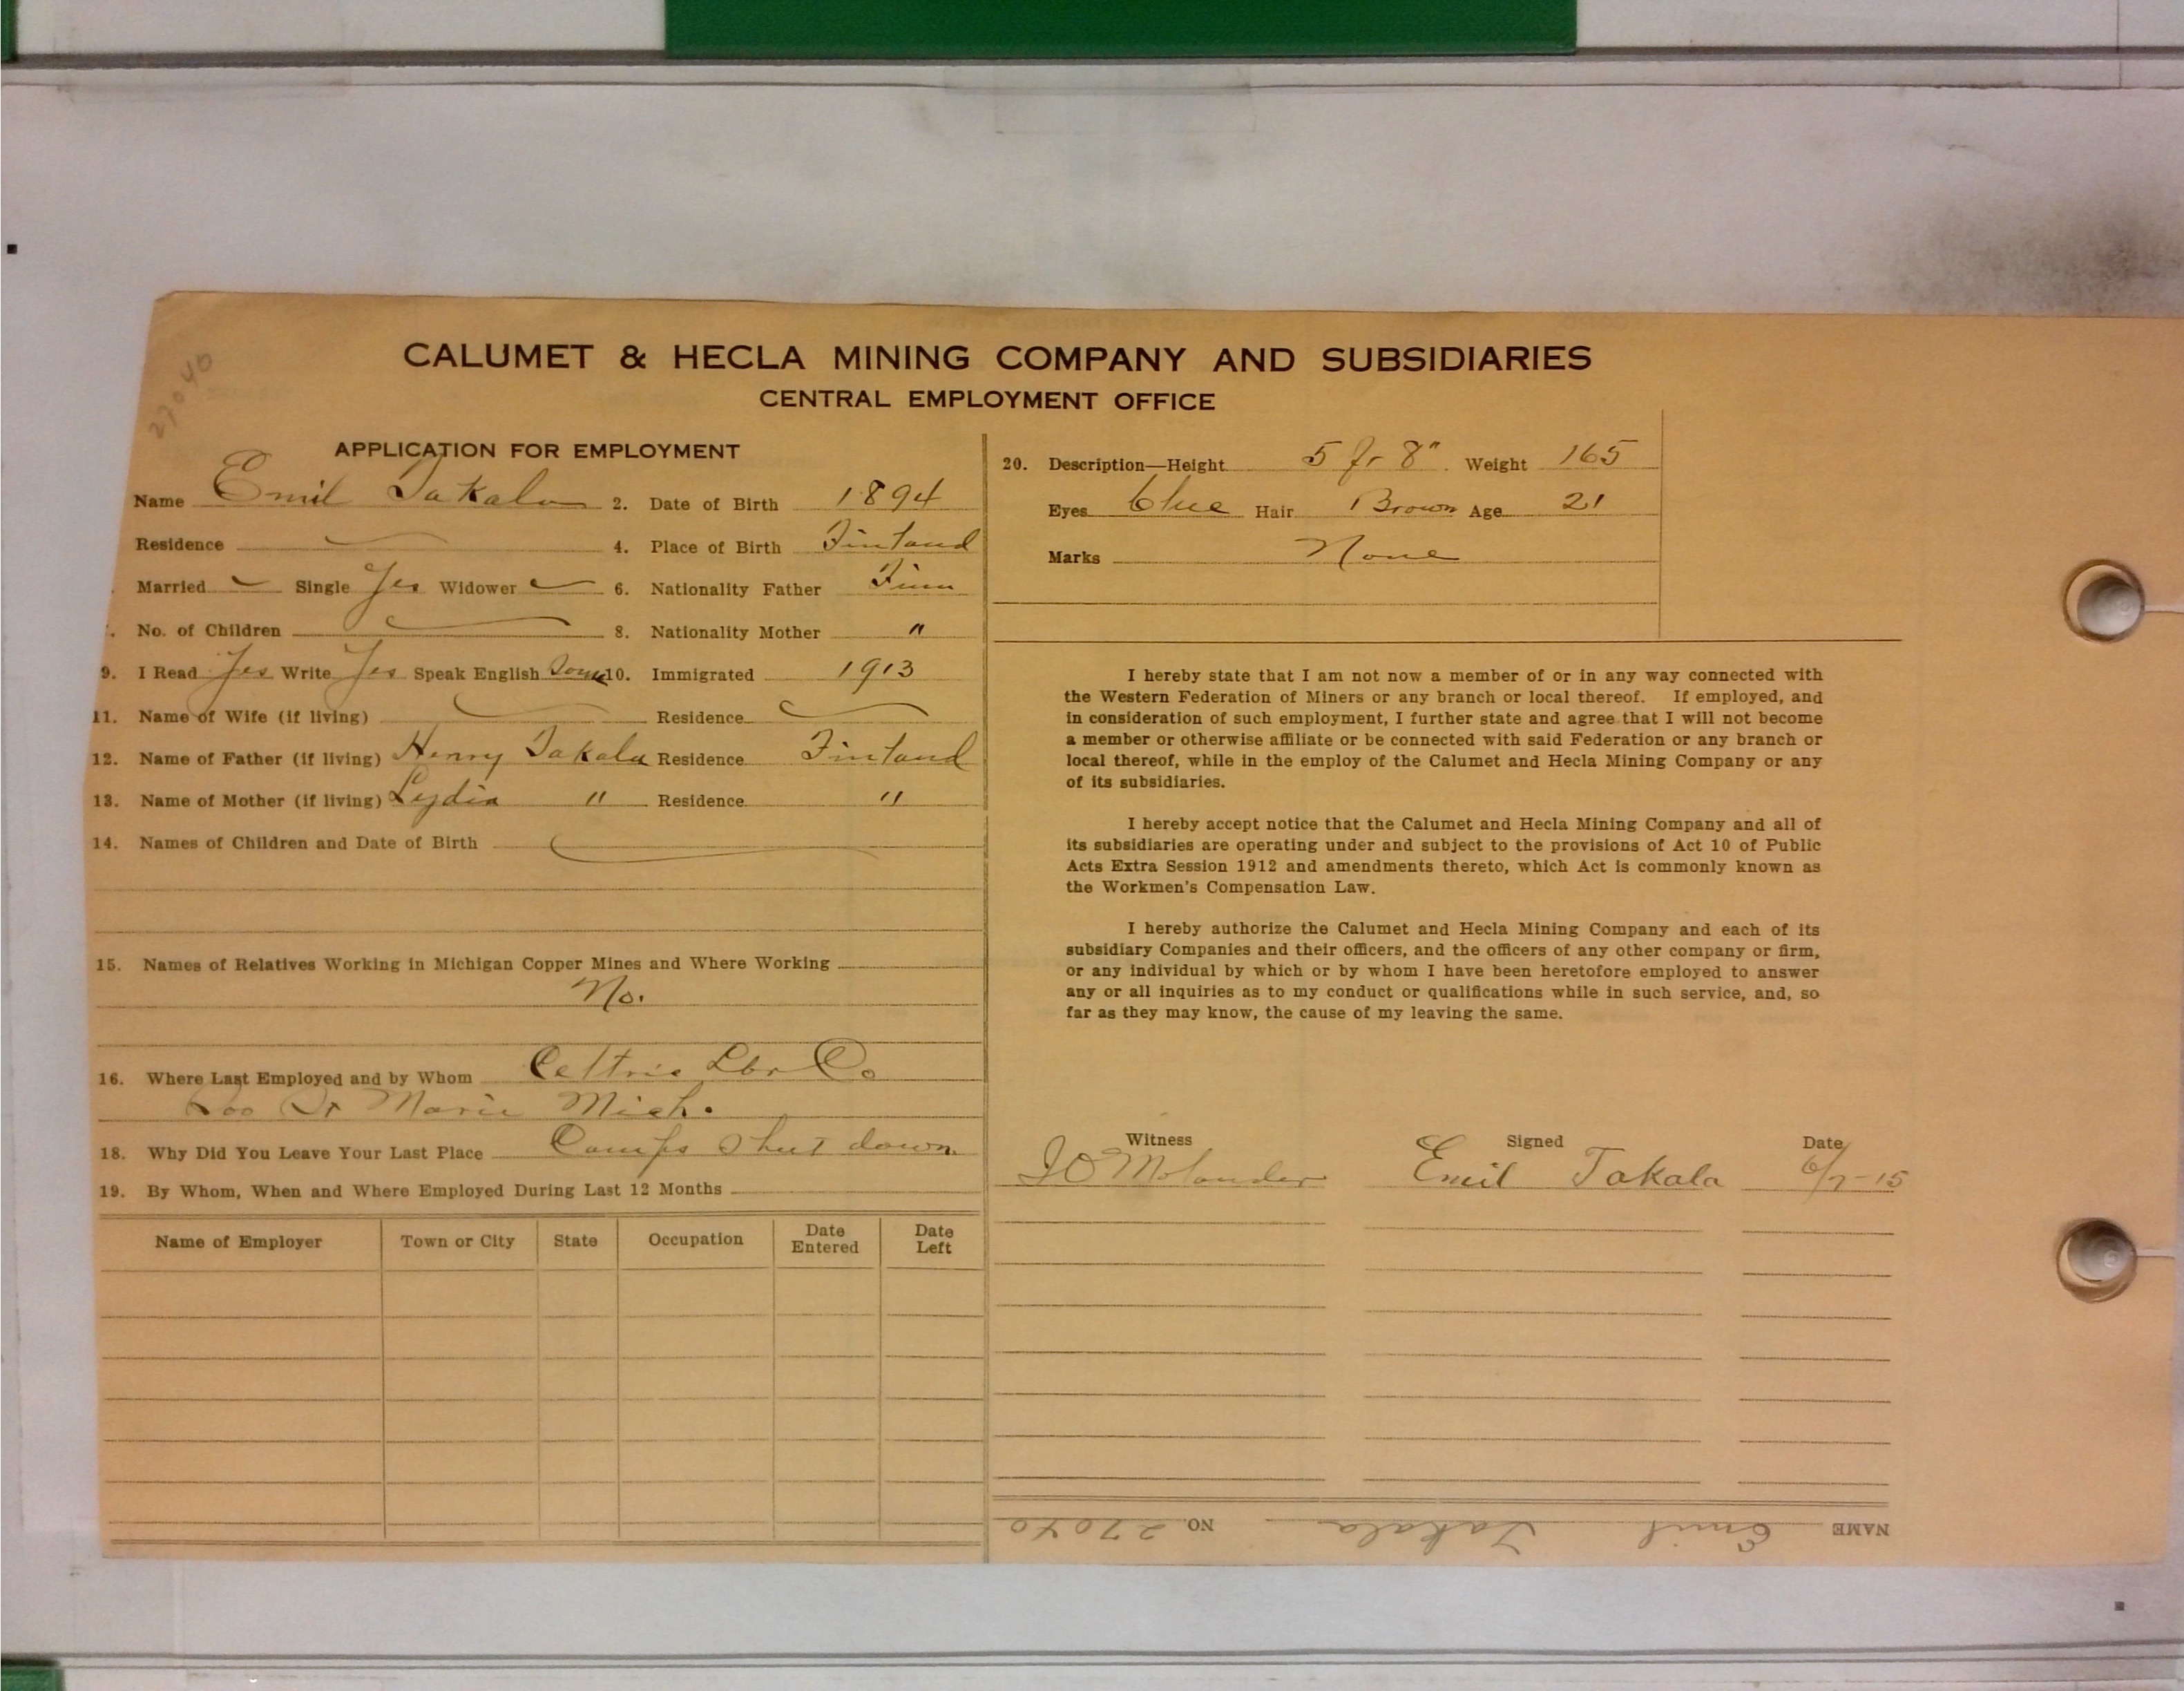 27040
CALUMET & HECLA MINING COMPANY AND SUBSIDIARIES
CENTRAL EMPLOYMENT OFFICE
APPLICATION FOR EMPLOYMENT
Name Emil Takala 2. Date of Birth 1894
Residence 4. Place of Birth Finland
Married Single Yes Widower 6. Nationality Father Finn
No. of Children 8. Nationality Mother "
9. I Read Yes Write Yes Speak English Some 10. Immigrated 1913
11. Name of Wife (if living) Residence
12. Name of Father (if living) Henry Takala Residence Finland
13. Name of Mother (if living) Lydia " Residence "
14. Names of Children and Date of Birth
15. Names of Relatives Working in Michigan Copper Mines and Where Working
No.
16. Where Last Employed and by Whom Lbr Co
Soo St Marie Mich.
18. Why Did You Leave Your Last Place Camps shut down.
19. By Whom, When and Where Employed During Last 12 Months
Name of Employer Town or City State Occupation Date Entered Date Left
20. Description—Height 5 ft 8". Weight 165
Eyes blue Hair Brown Age 21
Marks None
I hereby state that I am not now a member of or in any way connected with
the Western Federation of Miners or any branch or local thereof. If employed, and
in consideration of such employment, I further state and agree that I will not become
a member or otherwise affiliate or be connected with said Federation or any branch or
local thereof, while in the employ of the Calumet and Hecla Mining Company or any
of its subsidiaries.
I hereby accept notice that the Calumet and Hecla Mining Company and all of
its subsidiaries are operating under and subject to the provisions of Act 10 of Public
Acts Extra Session 1912 and amendments thereto, which Act is commonly known as
the Workmen's Compensation Law.
I hereby authorize the Calumet and Hecla Mining Company and each of its
subsidiary Companies and their officers, and the officers of any other company or firm,
or any individual by which or by whom I have been heretofore employed to answer
any or all inquiries as to my conduct or qualifications while in such service, and, so
far as they may know, the cause of my leaving the same.
Witness Signed Date
JO Molander Emil Takala 6/7-15
NAME Emil Takala NO. 27040